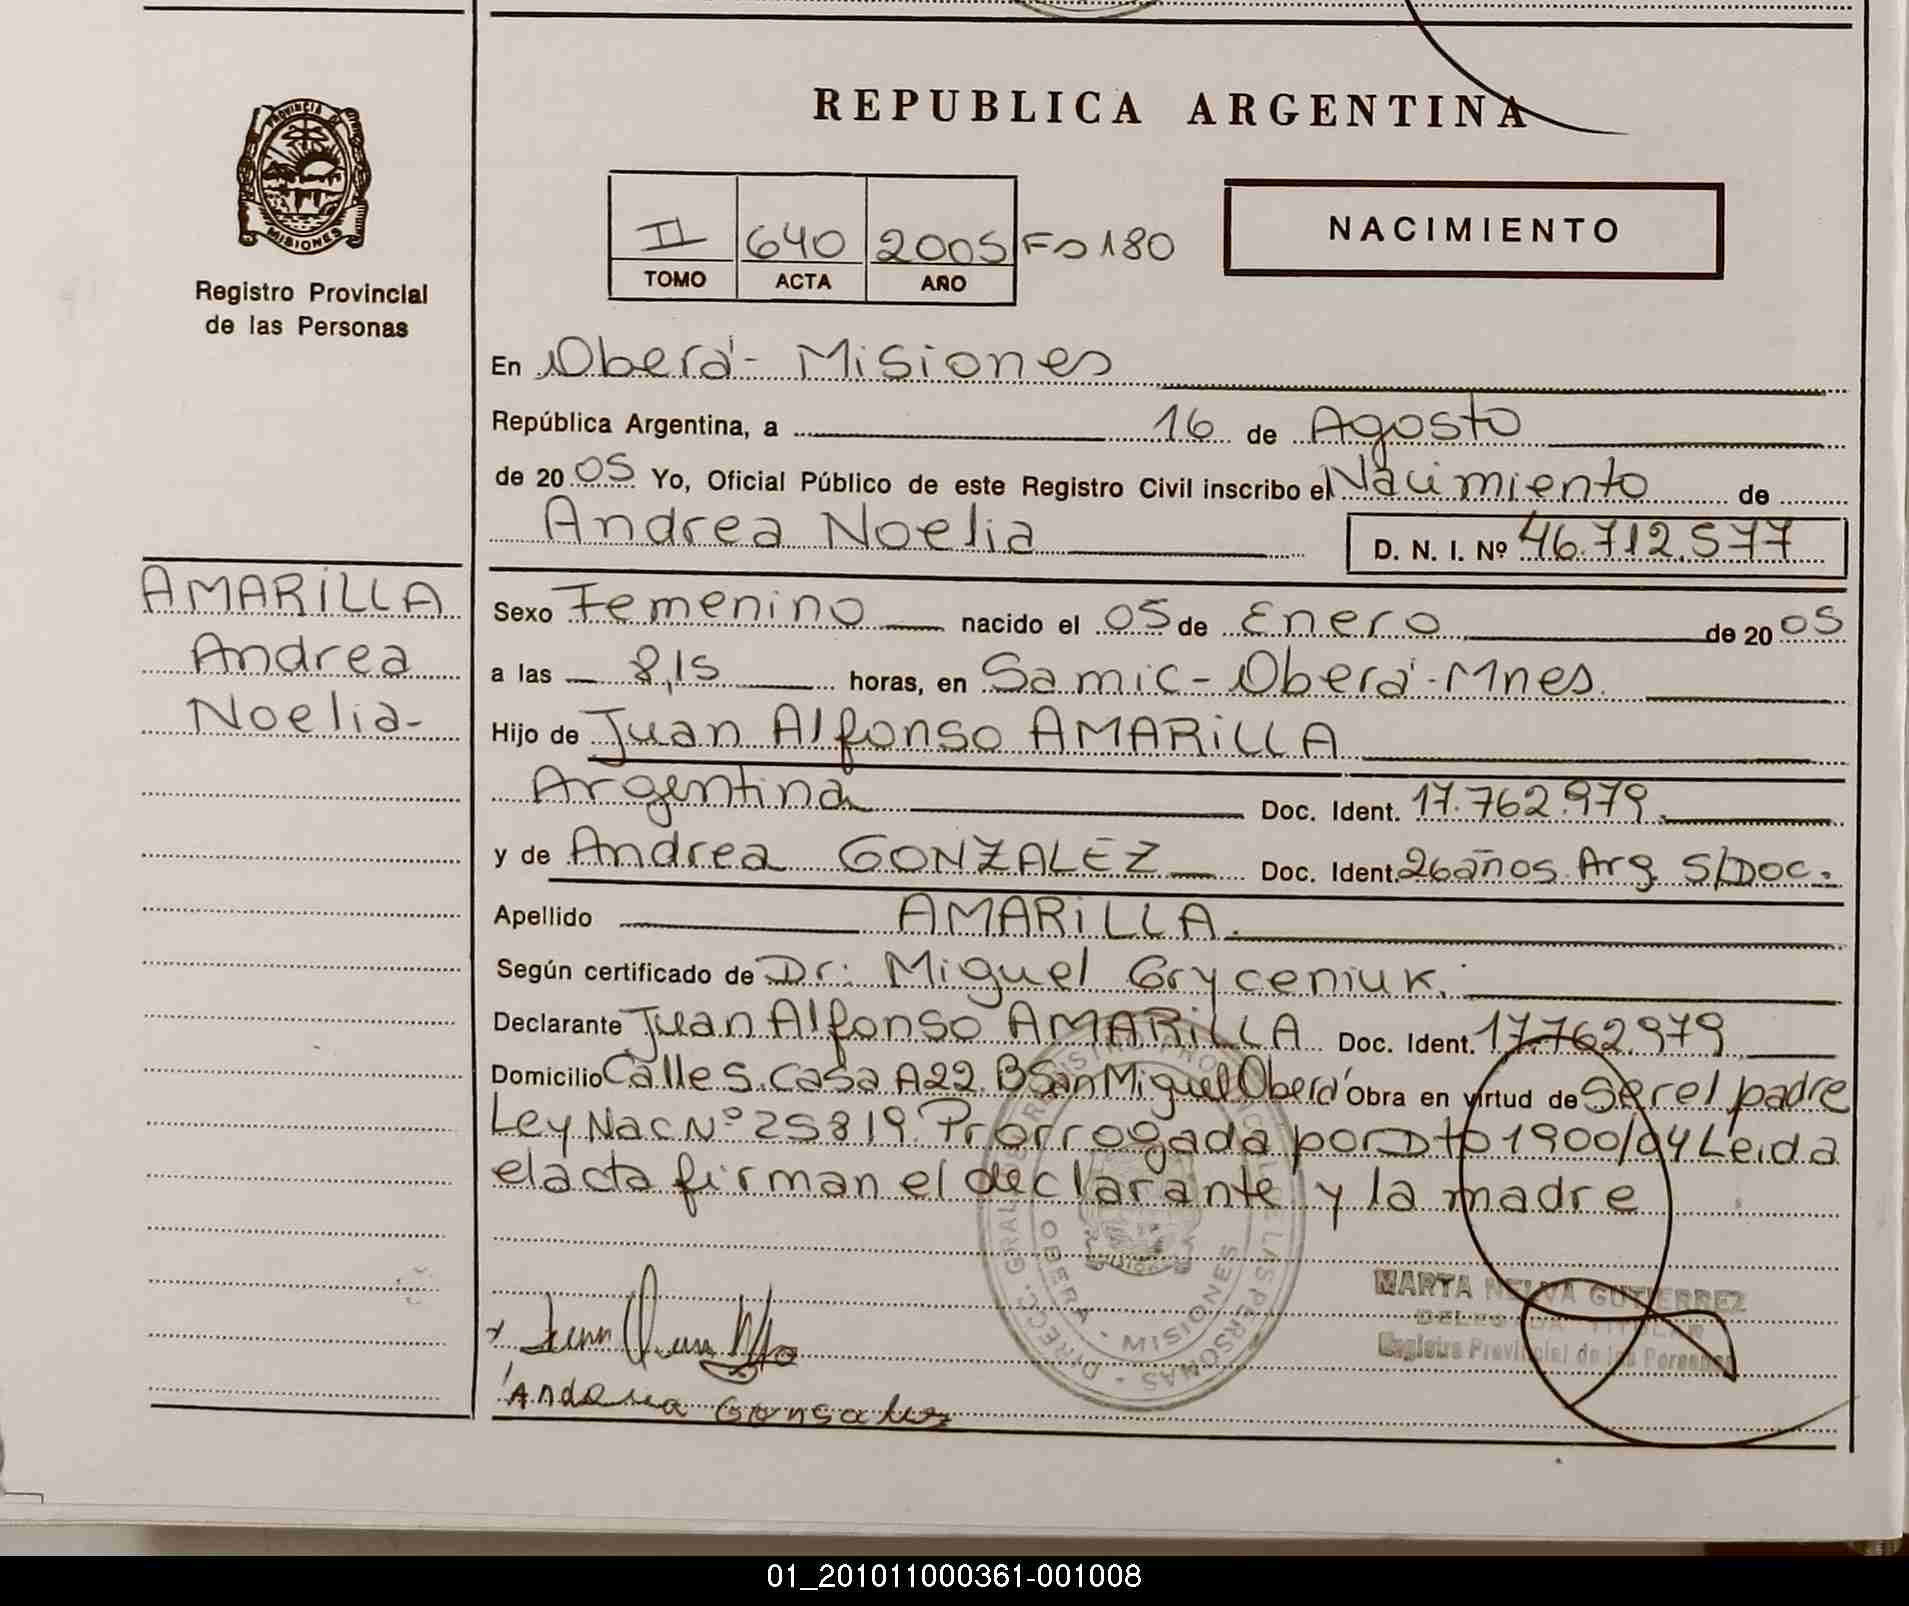 REPUBLICA ARGENTINA
PROVINCIA DE
MISIONES
Registro Provincial
de las Personas
II 640 2005 Fo 180
TOMO ACTA AÑO
NACIMIENTO
En Oberá - Misiones
República Argentina, a 16 de Agosto
de 2005 Yo, Oficial Público de este Registro Civil inscribo el Nacimiento de
Andrea Noelia D. N. I. Nº 46.712.577
AMARILLA
Andrea
Noelia-
Sexo Femenino nacido el 05 de Enero de 2005
a las 8,15 horas, en Samic - Oberá - Mnes.
Hijo de Juan Alfonso AMARILLA
Argentina Doc. Ident. 17.762.979.
y de Andrea GONZALEZ Doc. Ident. 26 años Arg. S/Doc.
Apellido AMARILLA.
Según certificado de Dr: Miguel Gryceniuk.
Declarante Juan Alfonso AMARILLA Doc. Ident. 17.762.979
Domicilio Calle S. Casa A22. B San Miguel Oberá Obra en virtud de ser el padre
Ley Nac Nº 25819. Prorrogada por Dto 1900/04 Leida
el acta firman el declarante y la madre
DIRECC. GRAL. DE REGISTRO PROVINCIAL DE LAS PERSONAS
OBERA - MISIONES
MARTA NELVA GUTIERREZ
DELEGADA TITULAR
Registro Provincial de las Personas
01_201011000361-001008